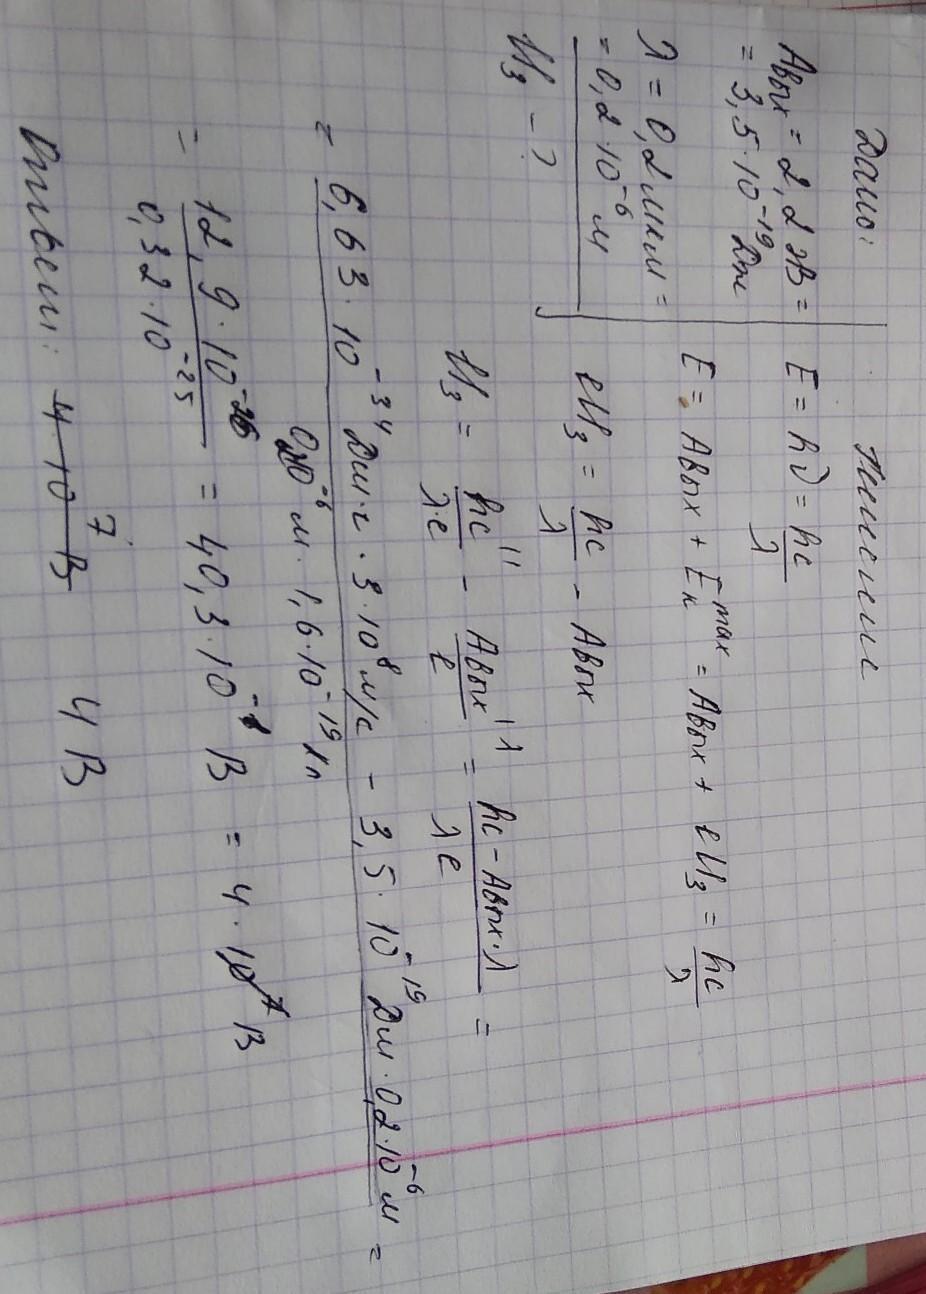 Дано:
Aвых = 2,2 эВ =
= 3,5·10⁻¹⁹ Дж
λ = 0,2 мкм =
= 0,2·10⁻⁶ м
Uз - ?
Решение
E = hν = hc/λ
E = Aвых + Eк^max = Aвых + eUз = hc/λ
eUз = hc/λ - Aвых
Uз = hc/λ·e - Aвых/e = hc - Aвых·λ/λe =
= 6,63·10⁻³⁴ Дж·с · 3·10⁸ м/с - 3,5·10⁻¹⁹ Дж·0,2·10⁻⁶ м =
10⁻⁶ м·1,6·10⁻¹⁹ Кл
= 12,9·10⁻²⁶/0,32·10⁻²⁵ = 40,3·10⁻¹ В = 4 В
Ответ: 4 В